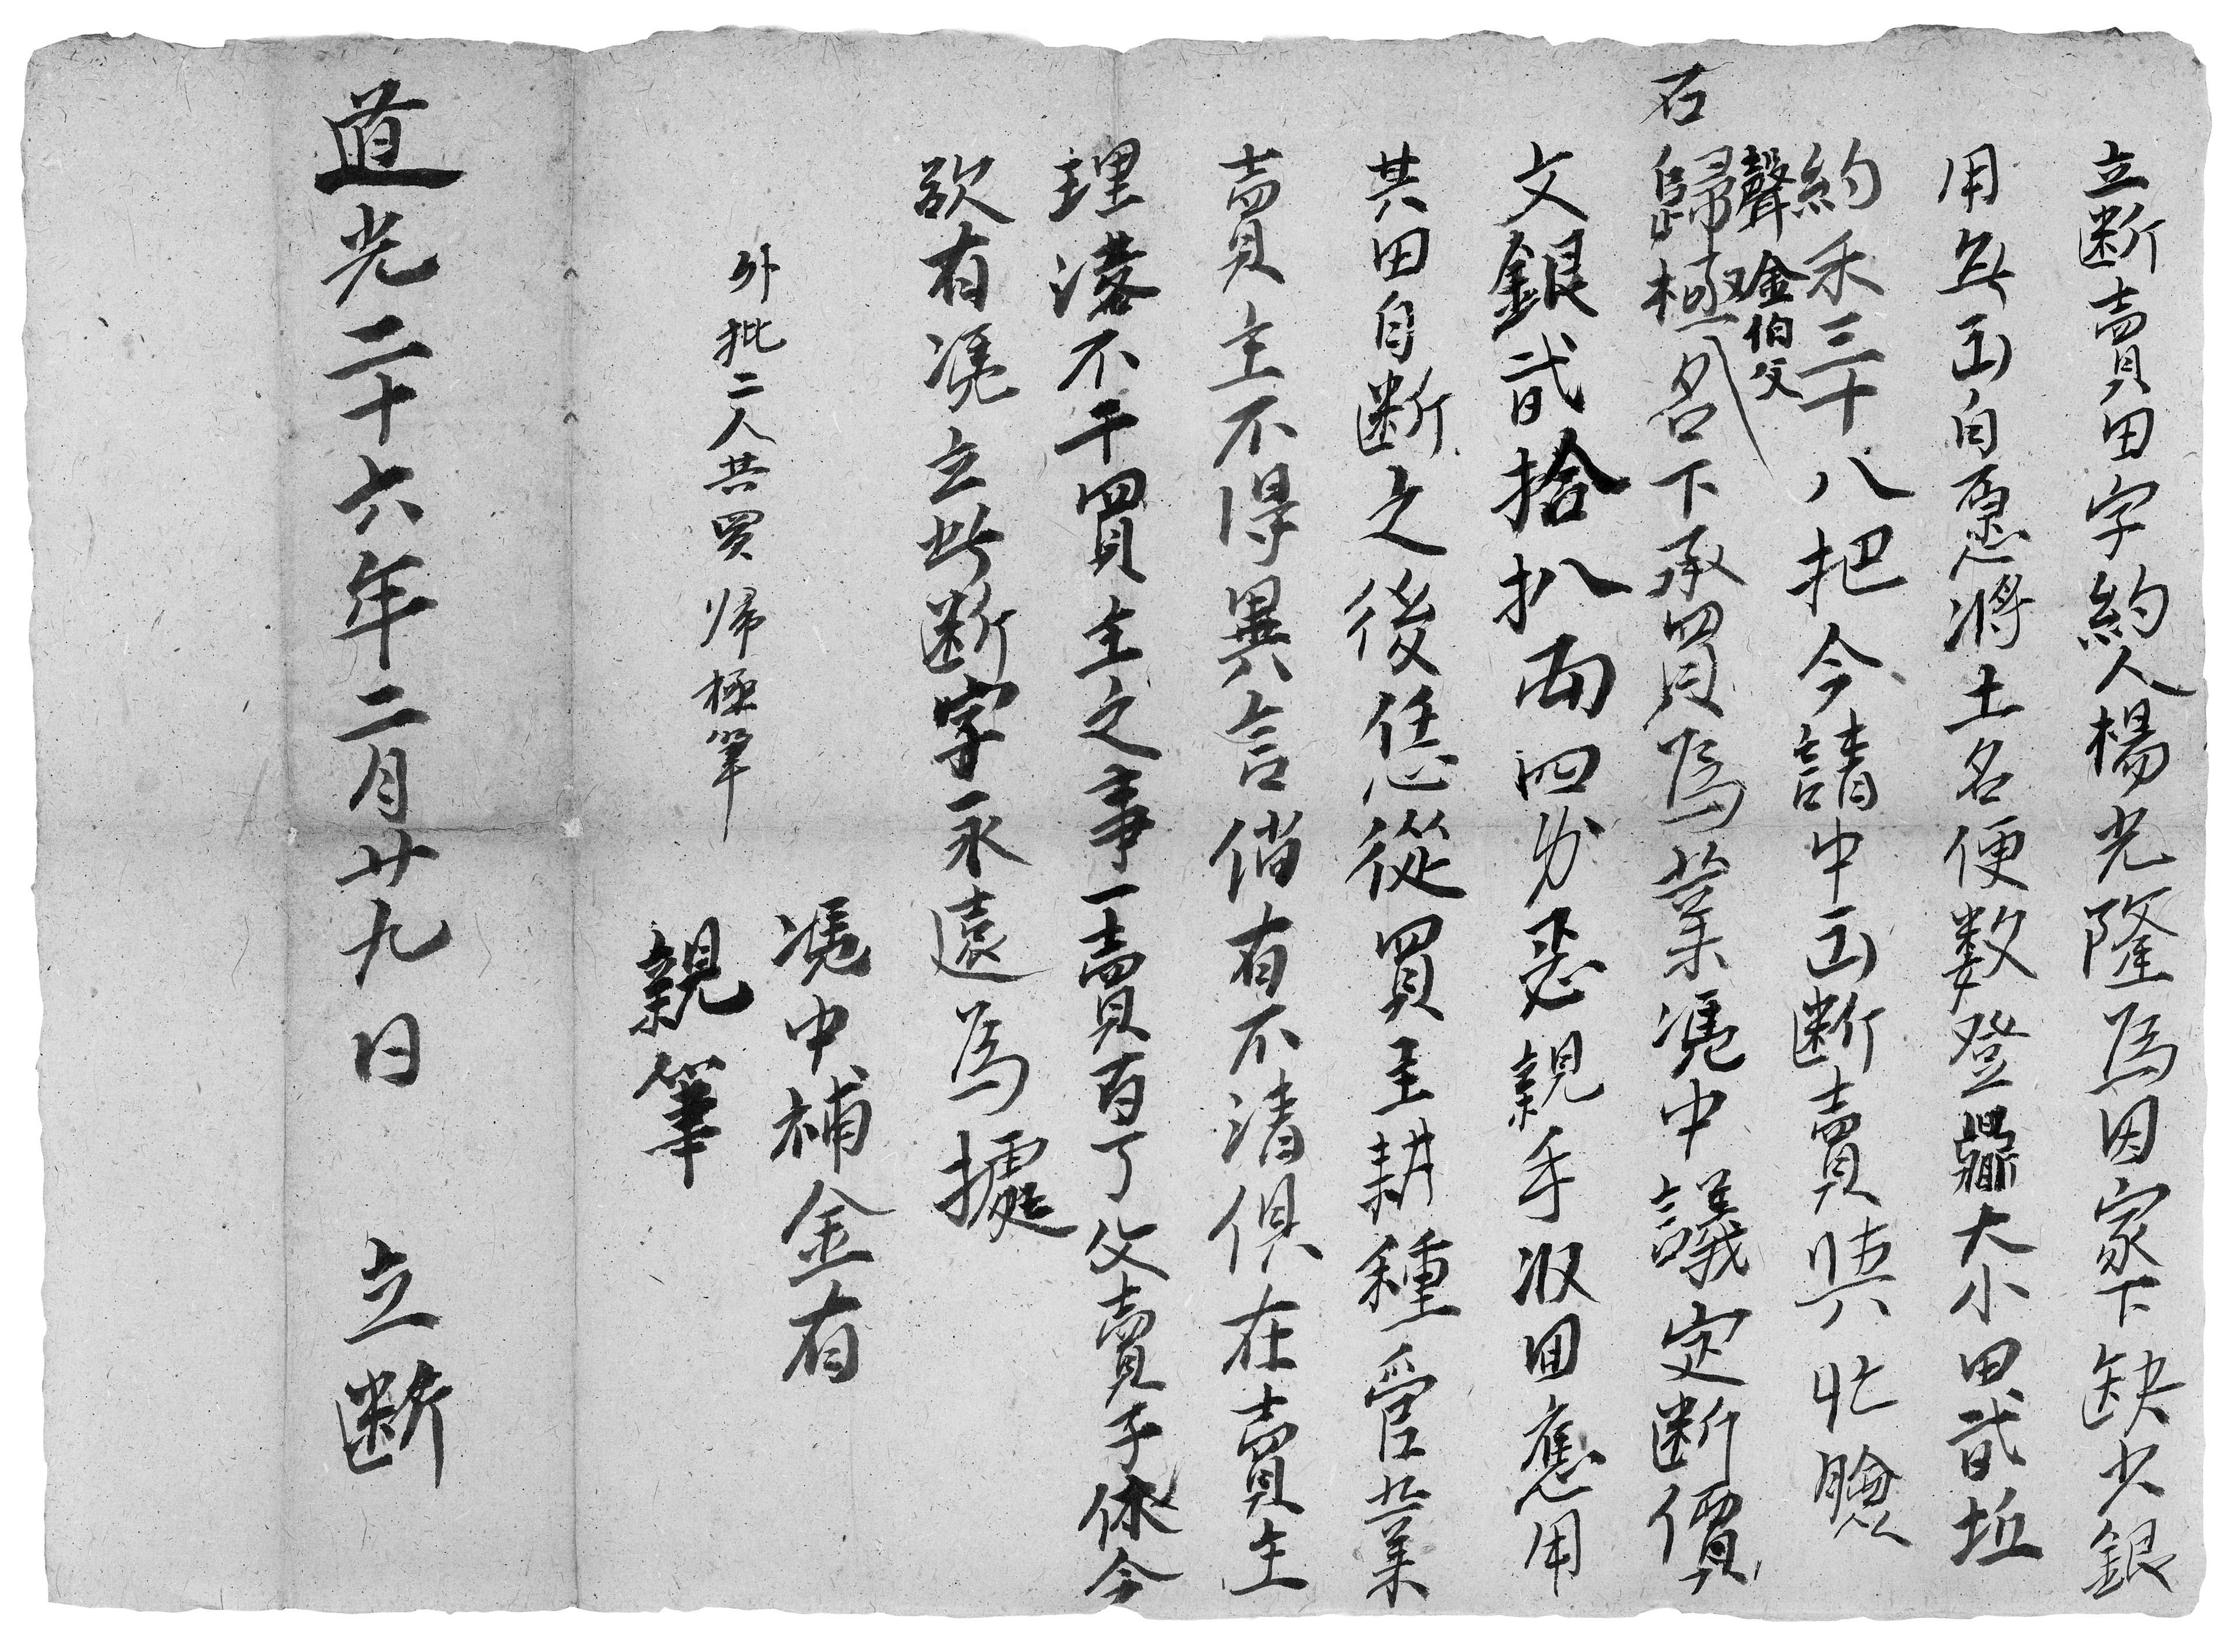 立断賣田字約人楊光隆為因家下缺少銀
用無出自愿將土名便数登鼎大小田貳坵
約禾三十八把今請中出断賣與北膽
聲金伯父
右歸極名下承買為業凴中議定断價
文銀貳拾扒両四分忍親手收回應用
其田自断之後任從買主耕種管業
賣主不得異言倘有不清俱在賣主
理落不干買主之事一賣百了父賣子休今
欲有凴立此断字永遠為據
外批二人共買歸極筆
凴中補金有
親筆
道光二十六年二月廿九日 立断